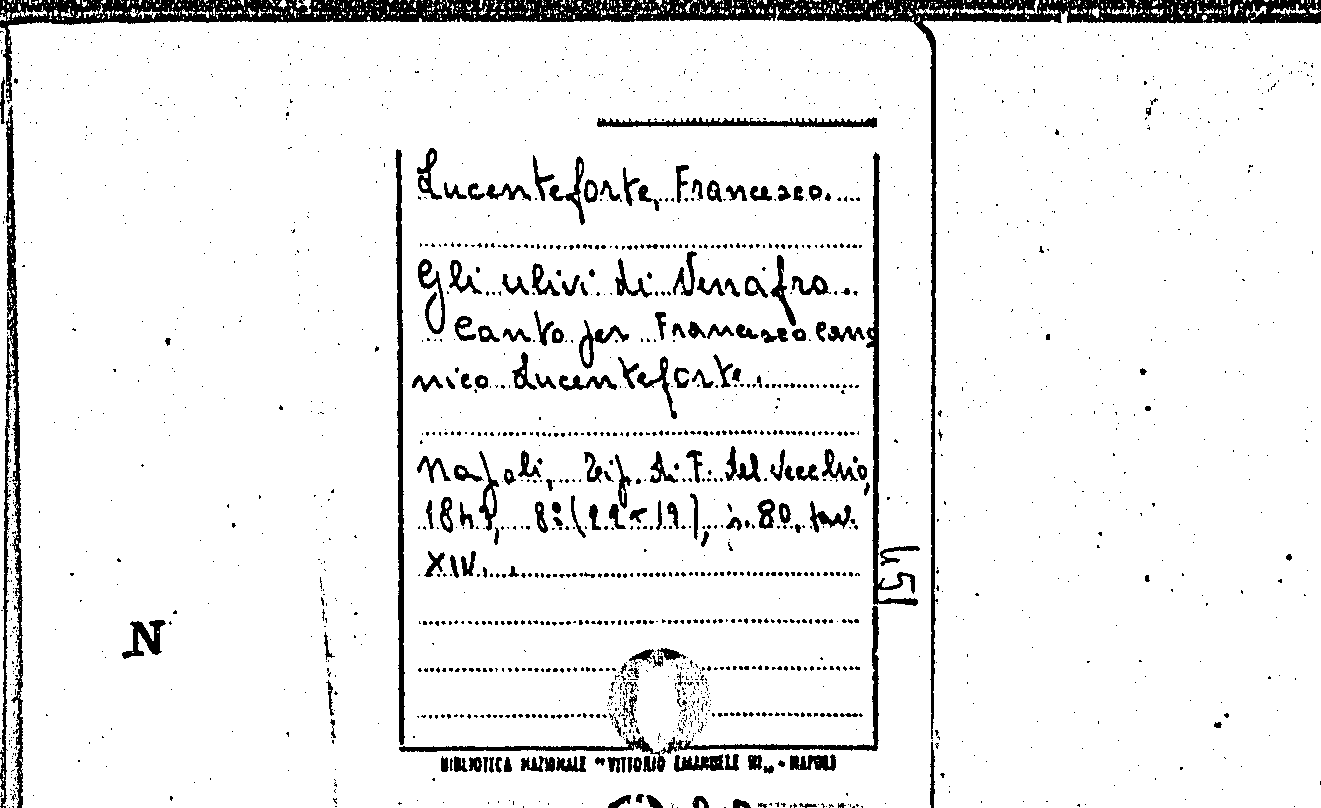 Lucenteforte, Francesco.
Gli ulivi di Venafro.
Canto per Francesco cano
nico Lucenteforte.
Napoli, Tip. di F. del Vecchio,
8° (22 × 19), p. 80, tav.
XIV.
451
N
BIBLIOTECA NAZIONALE "VITTORIO EMANUELE III" - NAPOLI